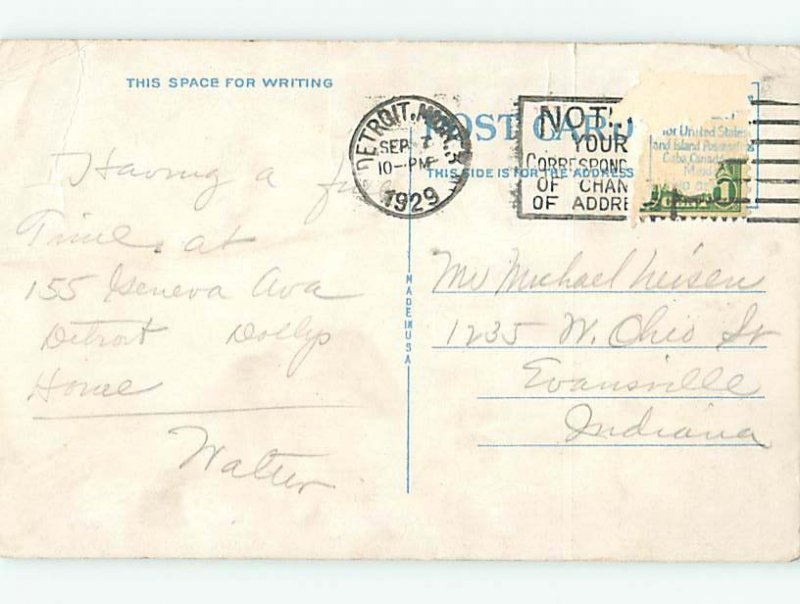 THIS SPACE FOR WRITING
POST CARD
THIS SIDE IS FOR THE ADDRESS
DETROIT, MICH.
SEP 7
10-PM
1929
NOTIFY
YOUR
CORRESPOND
OF CHAN
OF ADDRE
for United States
and Island Possessions
Cuba, Canada
MADE IN USA
Having a fine
Time at
155 Geneva Ava
Detroit Dollys
Home
Walter
Mr Michael Neisen
1235 W. Ohio St
Evansville
Indiana